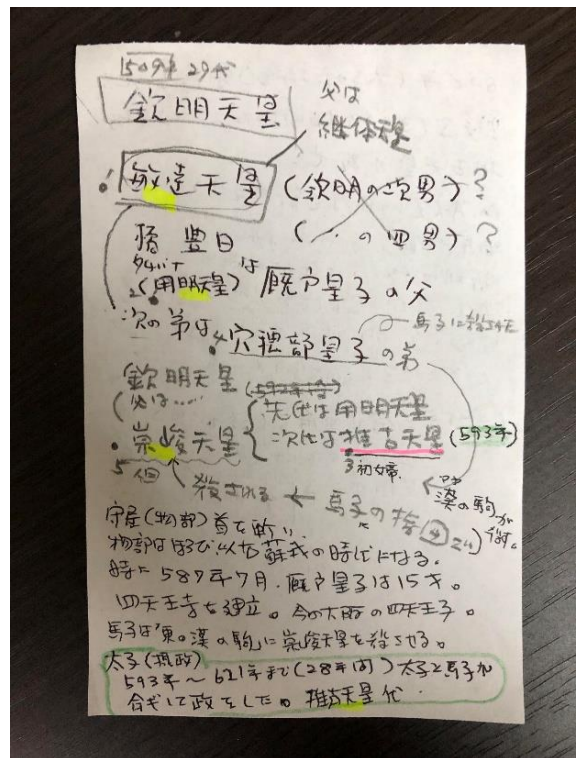 1509年 29代
欽明天皇
父は
継体天皇
敏達天皇 (欽明の次男)?
橘豊日 (〃の四男)?
2(用明天皇)は厩戸皇子の父
次の弟は4穴穂部皇子の弟
馬子に殺された
欽明天皇
父は……
崇峻天皇
先代は用明天皇
次代は推古天皇 (593年)
3初女帝
5
殺される ← 馬子の指令
漢の駒が
守屋(物部)首を断ツ
物部はほろび以后蘇我の時代になる。
時に587年7月.厩戸皇子は15才。
四天王寺を建立。今の大阪の四天王寺。
馬子は「東。漢の駒」に崇峻天皇を殺させる。
太子(摂政)
593年〜621年まで(28年間)太子と馬子が
合ギして政をした。推古天皇代.